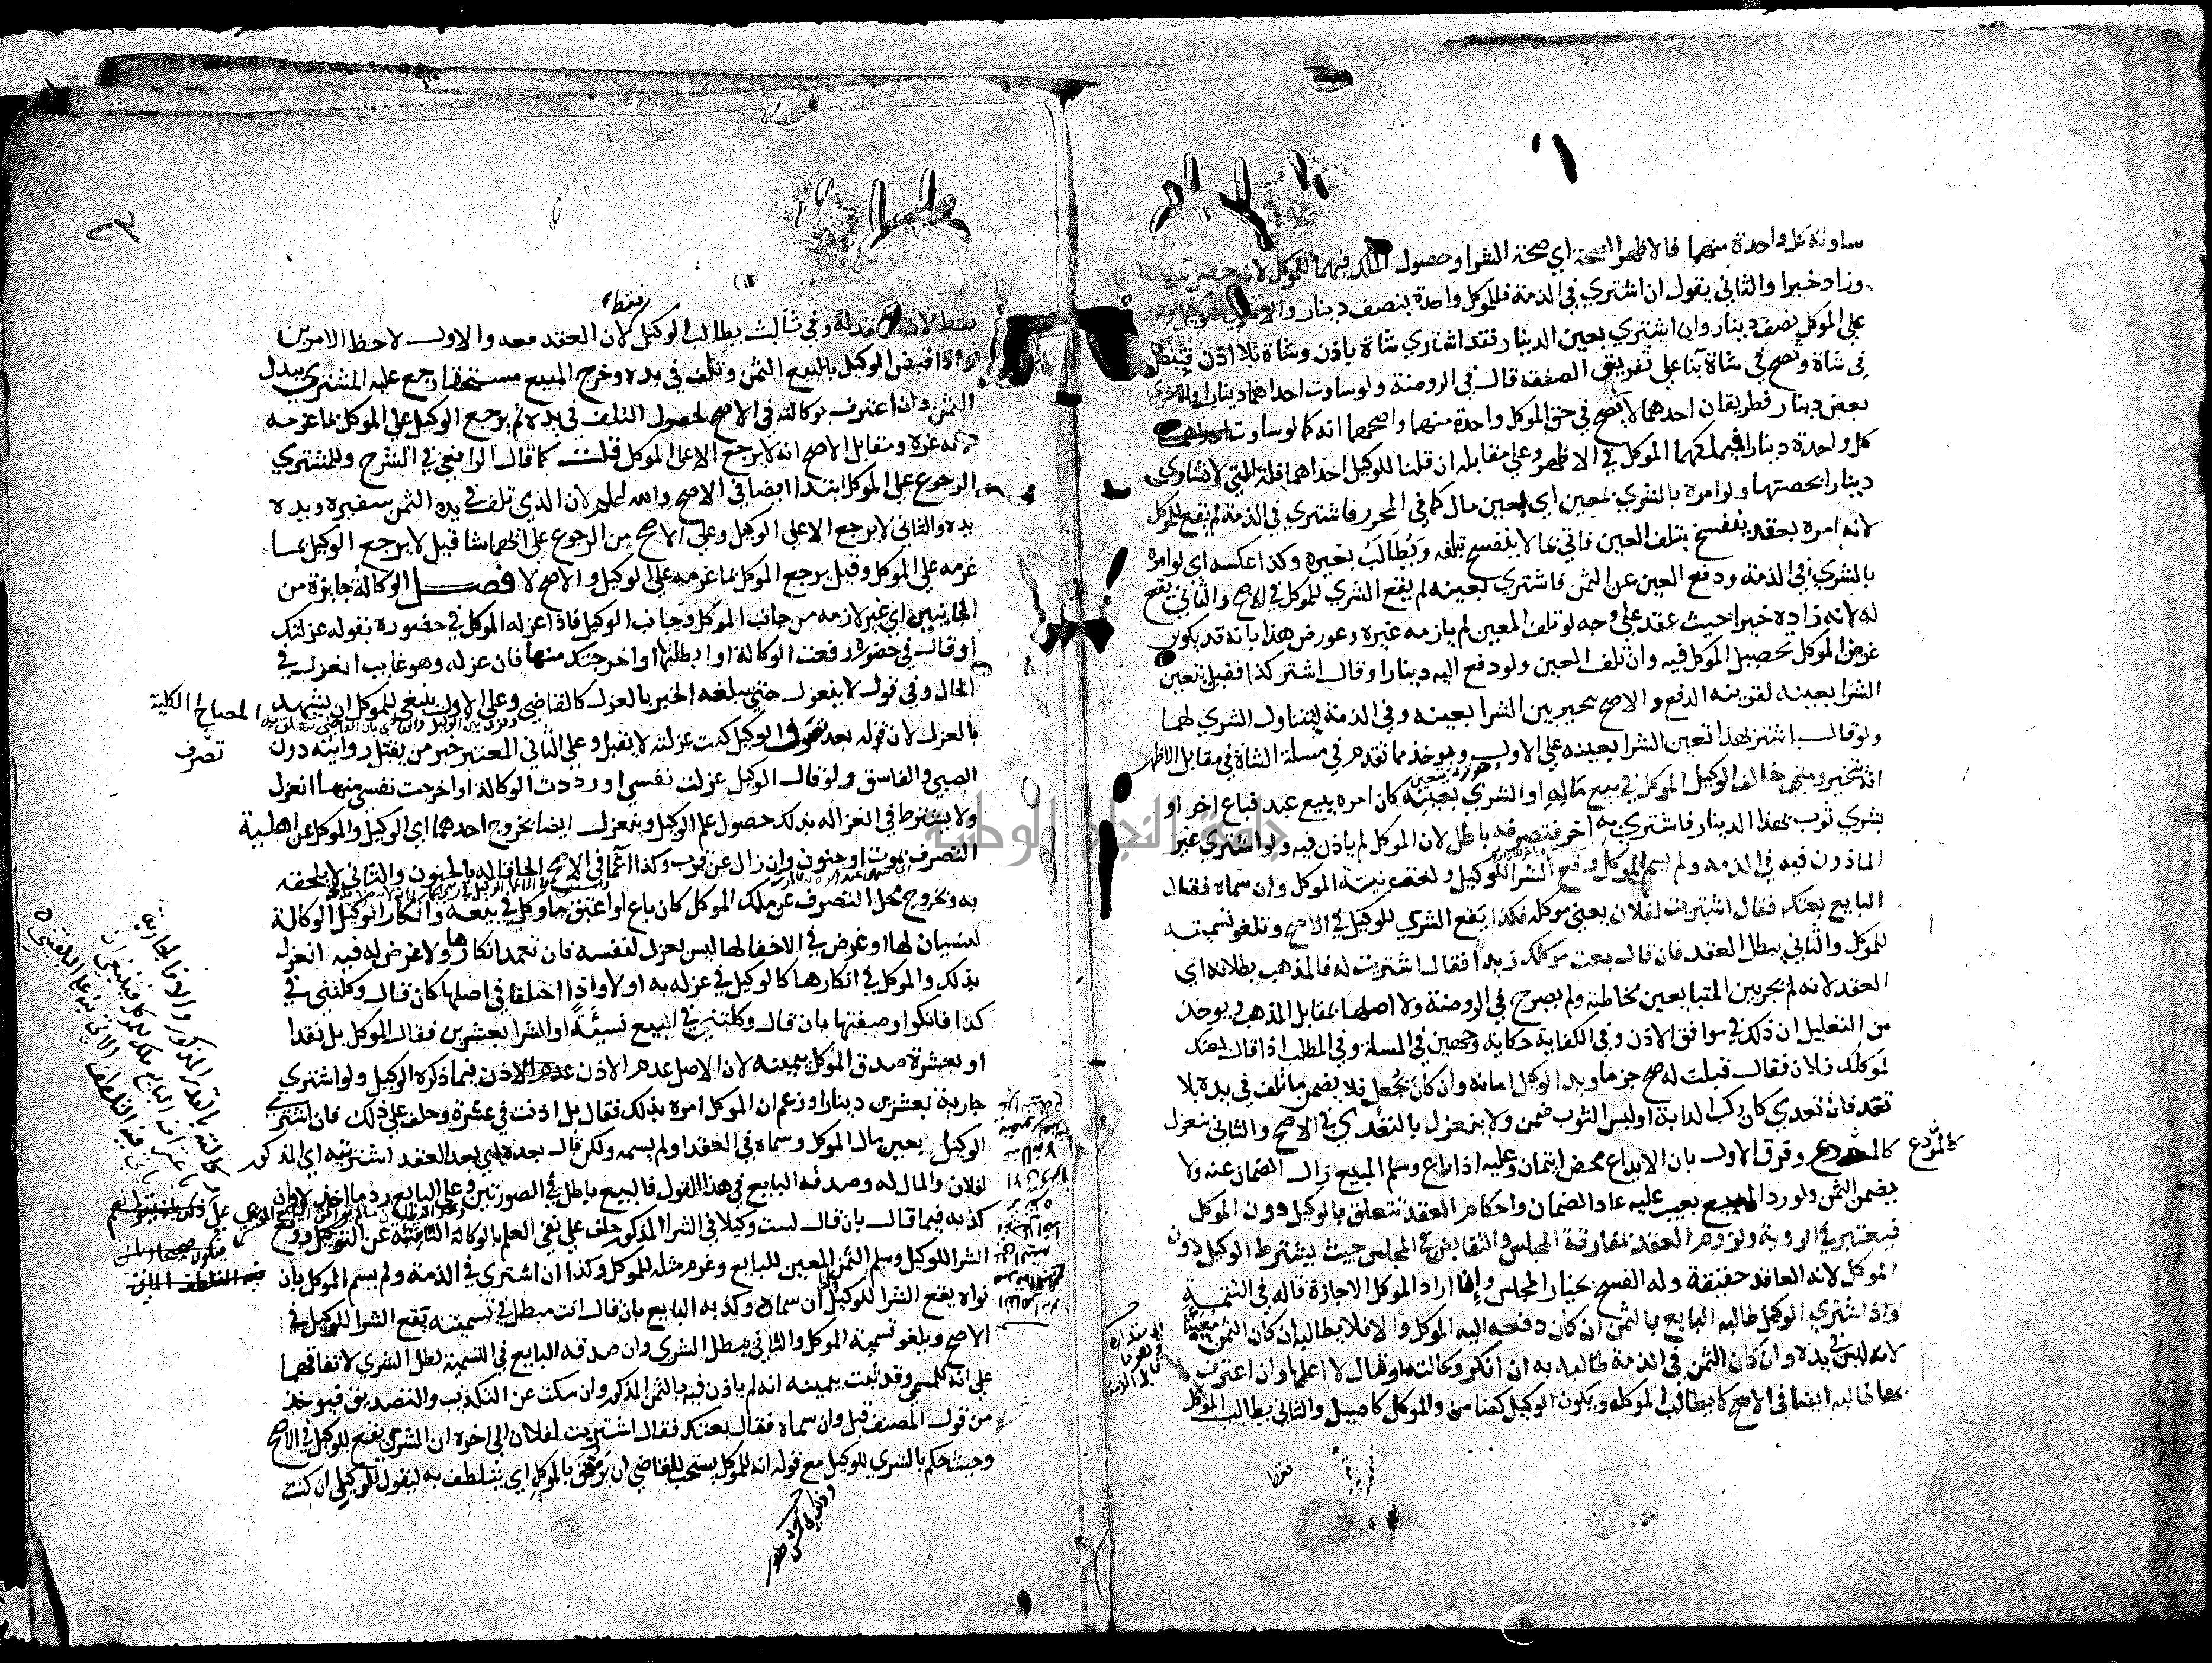 ساوته كل واحدة منهما فالاظهر الصحة اي صحة الشرا وحصول الملك فيهما للموكل لانه حصر
وزاد خيرا والثاني يقول ان اشتري في الذمة فللموكل واحدة بنصف دينار والاخري للوكيل ويرد
علي الموكل نصف دينار وان اشتري بعين الدينار فقد اشتري شاة باذن وشاة بلا اذن فيبطل
في شاة ويصح في شاة بنا علي تفريق الصفقة قال في الروضة ولو ساوت احداهما دينارا والاخري
بعض دينار فطريقان احدهما لا يصح في حق الموكل واحدة منهما واصحهما انه كما لو ساوت
كل واحدة دينارا فيملكهما الموكل في الاظهر وعلي مقابله ان قلنا للوكيل احداهما فله التي لا تساوي
دينارا بحصتها ولو امره بالشري بمعين اي بعين مال كما في المحرر فاشتري في الذمة لم يقع للموكل
لانه امره بعقد ينفسخ بتلف العين فاتي بما لا ينفسخ بتلفه ويطالب بغيره وكذا عكسه اي لو امره
بالشري في الذمة ودفع العين عن الثمن فاشتري بعينه لم يقع الشري للموكل في الاصح والثاني يقع
له لانه زاده خيرا حيث عقد علي وجه لو تلف المعين لم يلزمه غيره وعورض هذا بانه قد يكون
غرض الموكل تحصيل الموكل فيه وان تلف العين ولو دفع اليه دينارا وقال اشتر كذا فقيل يتعين
الشرا بعينه لقرينة الدفع والاصح تخييره بين الشرا بعينه وفي الذمة ليتناول الشري لهما
ولو قال اشتر بهذا تعين الشرا بعينه علي الاول ويوخذ مما تقدم في مسلة الشاة في مقابل الاظهر
انه يتخير ومتي خالف الوكيل الموكل في بيع ماله او الشري بعينه كان امره ببيع عبد فباع اخر او
بشري ثوب بهذا الدينار فاشتري به اخر فتصرفه باطل لان الموكل لم ياذن فيه ولو اشتري غير
الماذون فيه في الذمة ولم يسم الموكل وقع الشرا للوكيل ولغت نية الموكل وان سماه فقال
البايع بعتك فقال اشتريت لفلان يعني موكله فكذا يقع الشري للوكيل في الاصح وتلغو تسمية
للموكل والثاني يبطل العقد فان قال بعت موكلك زيدا فقال اشتريت له فالمذهب بطلانه اي
العقد لانه لم يجر بين المتبايعين مخاطبة ولم يصرح في الروضة ولا اصلها بمقابل المذهب ويوخذ
من التعليل ان ذلك في موافق الاذن وفي الكفاية حكاية وجهين في المسلة وفي المطلب اذا قال بعتك
لموكلك فلان فقال قبلت له صح جزما ويد الوكيل امانة وان كان بجعل فلا يضمن ما تلف في يده بلا
تعد فان تعدي كان ركب الدابة او لبس الثوب ضمن ولا ينعزل بالتعدي في الاصح والثاني ينعزل
كالمودع وفرق الاول بان الايداع محض ايتمان وعليه اذا باع وسلم المبيع زال الضمان عنه ولا
كالمودع
يضمن الثمن ولو رد المبيع بعيب عليه عاد الضمان واحكام العقد تتعلق بالوكيل دون الموكل
فيعتبر في الروية ولزوم العقد مفارقة المجلس والتقابض في المجلس حيث يشترط الوكيل دون
الموكل لانه العاقد حقيقة وله الفسخ بخيار المجلس وان اراد الموكل الاجازة قاله في التتمة
واذا اشتري الوكيل طالبه البايع بالثمن ان كان دفعه اليه الموكل والا فلا يطالبه ان كان الثمن معينا
لانه ليس في يده وان كان الثمن في الذمة طالبه به ان انكر وكالته او قال لا اعلمها وان اعترف
بها طالبه ايضا في الاصح كما يطالب الموكل ويكون الوكيل كضامن والموكل كاصيل والثاني يطالب الموكل
فقط
فقط لان العقد له وفي ثالث يطالب الوكيل لان العقد معه والاول لاحظ الامرين
واذا قبض الوكيل بالبيع الثمن وتلف في يده وخرج المبيع مستحقا رجع عليه المشتري ببدل
الثمن وان اعترف بوكالته في الاصح لحصول التلف في يده ثم يرجع الوكيل علي الموكل بما غرمه
لانه غره ومقابل الاصح انه لا يرجع الا علي الموكل قلت كما قال الرافعي في الشرح وللمشتري
الرجوع علي الموكل ابتدا ايضا في الاصح والله اعلم لان الذي تلف في يده الثمن سفيره ويده
يده والثاني لا يرجع الا علي الوكيل وعلي الاصح من الرجوع علي ايهما شا قيل لا يرجع الوكيل بما
غرمه علي الموكل وقيل يرجع الموكل بما غرمه علي الوكيل والاصح لا فصل الوكالة جايزة من
الجانبين اي غير لازمة من جانب الموكل وجانب الوكيل فاذا عزله الموكل في حضوره بقوله عزلتك
او قال في حضوره رفعت الوكالة او ابطلتها او اخرجتك منها فان عزله وهو غايب انعزل في
الحال وفي قول لا ينعزل حتي يبلغه الخبر بالعزل كالقاضي وعلي الاول ينبغي للموكل ان يشهد
المصالح الكلية
بالعزل لان قوله بعد تصرف الوكيل كنت عزلته لا يقبل وعلي الثاني المعتبر خبر من يقبل روايته دون
تصرف
الصبي والفاسق ولو قال الوكيل عزلت نفسي او رددت الوكالة او اخرجت نفسي منها انعزل
ولا يشترط في انعزاله بذلك حصول علم الوكيل وينعزل ايضا بخروج احدهما اي الوكيل والموكل عن اهلية
التصرف بموت او جنون وان زال عن قرب وكذا اغما في الاصح الحاقا له بالجنون والثاني لا يلحقه
به وبخروج محل التصرف عن ملك الموكل كان باع او اعتق ما وكل في بيعه وانكار الوكيل الوكالة
لنسيان لها او غرض في الاخفا لها ليس بعزل لنفسه فان تعمد انكارها ولا غرض له فيه انعزل
بذلك والموكل في انكارها كالوكيل في عزله به او لا واذا اختلفا في اصلها كان قال وكلتني في
كذا فانكر او صفتها بان قال وكلتني في البيع نسيئة او الشرا بعشرين فقال الموكل بل نقدا
او بعشرة صدق الموكل بيمينه لان الاصل عدم الاذن فيما ذكره الوكيل ولو اشتري
جارية بعشرين دينارا وزعم ان الموكل امره بذلك فقال بل اذنت في عشرة وحلف علي ذلك فان اشتري
الوكيل بعين مال الموكل وسماه في العقد او لم يسمه ولكن قال بعده اي بعد العقد اشتريته اي المذكور
لفلان والمال له وصدقه البايع في هذا القول فالبيع باطل في الصورتين وعلي البايع رد ما اخذ وان
كذبه فيما قال بان قال لست وكيلا في الشرا المذكور حلف علي نفي العلم بالوكالة الناشئة عن التوكيل ووقع
الشرا للوكيل وسلم الثمن المعين للبايع وغرم مثله للموكل وكذا ان اشتري في الذمة ولم يسم الموكل بان
نواه يقع الشرا للوكيل ان سماه وكذبه البايع بان قال انت مبطل في تسميته يقع الشرا للوكيل في
الاصح ويلغو تسمية الموكل والثاني يبطل الشري وان صدقه البايع في التسمية بطل الشري لاتفاقهما
علي انه للمسمي وقد ثبت بيمينه انه لم ياذن فيه بالثمن المذكور وان سكت عن التكذيب والتصديق فيوخذ
من قول المصنف قبل وان سماه فقال بعتك فقال اشتريت لفلان الي اخره ان الشري يقع للوكيل في الاصح
وحيث حكم بالشري للوكيل مع قوله انه للموكل يستحب للقاضي ان يرفق بالموكل اي يتلطف به ليقول للوكيل ان كنت